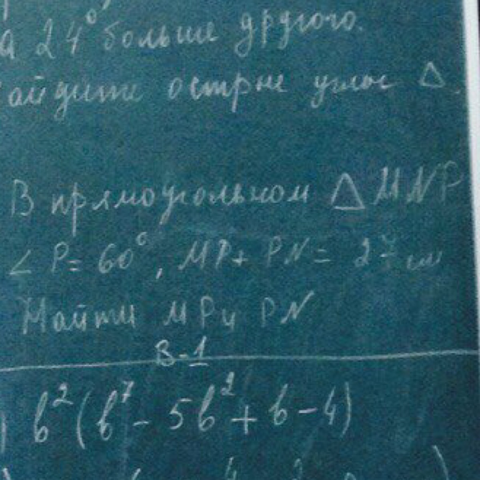 а 24° больше другого.
айдите острые углы Δ.
В прямоугольном Δ MNP
∠ P = 60°, MP + PN = 27 см
Найти MP и PN
В-1
b²(b⁷ - 5b² + b - 4)